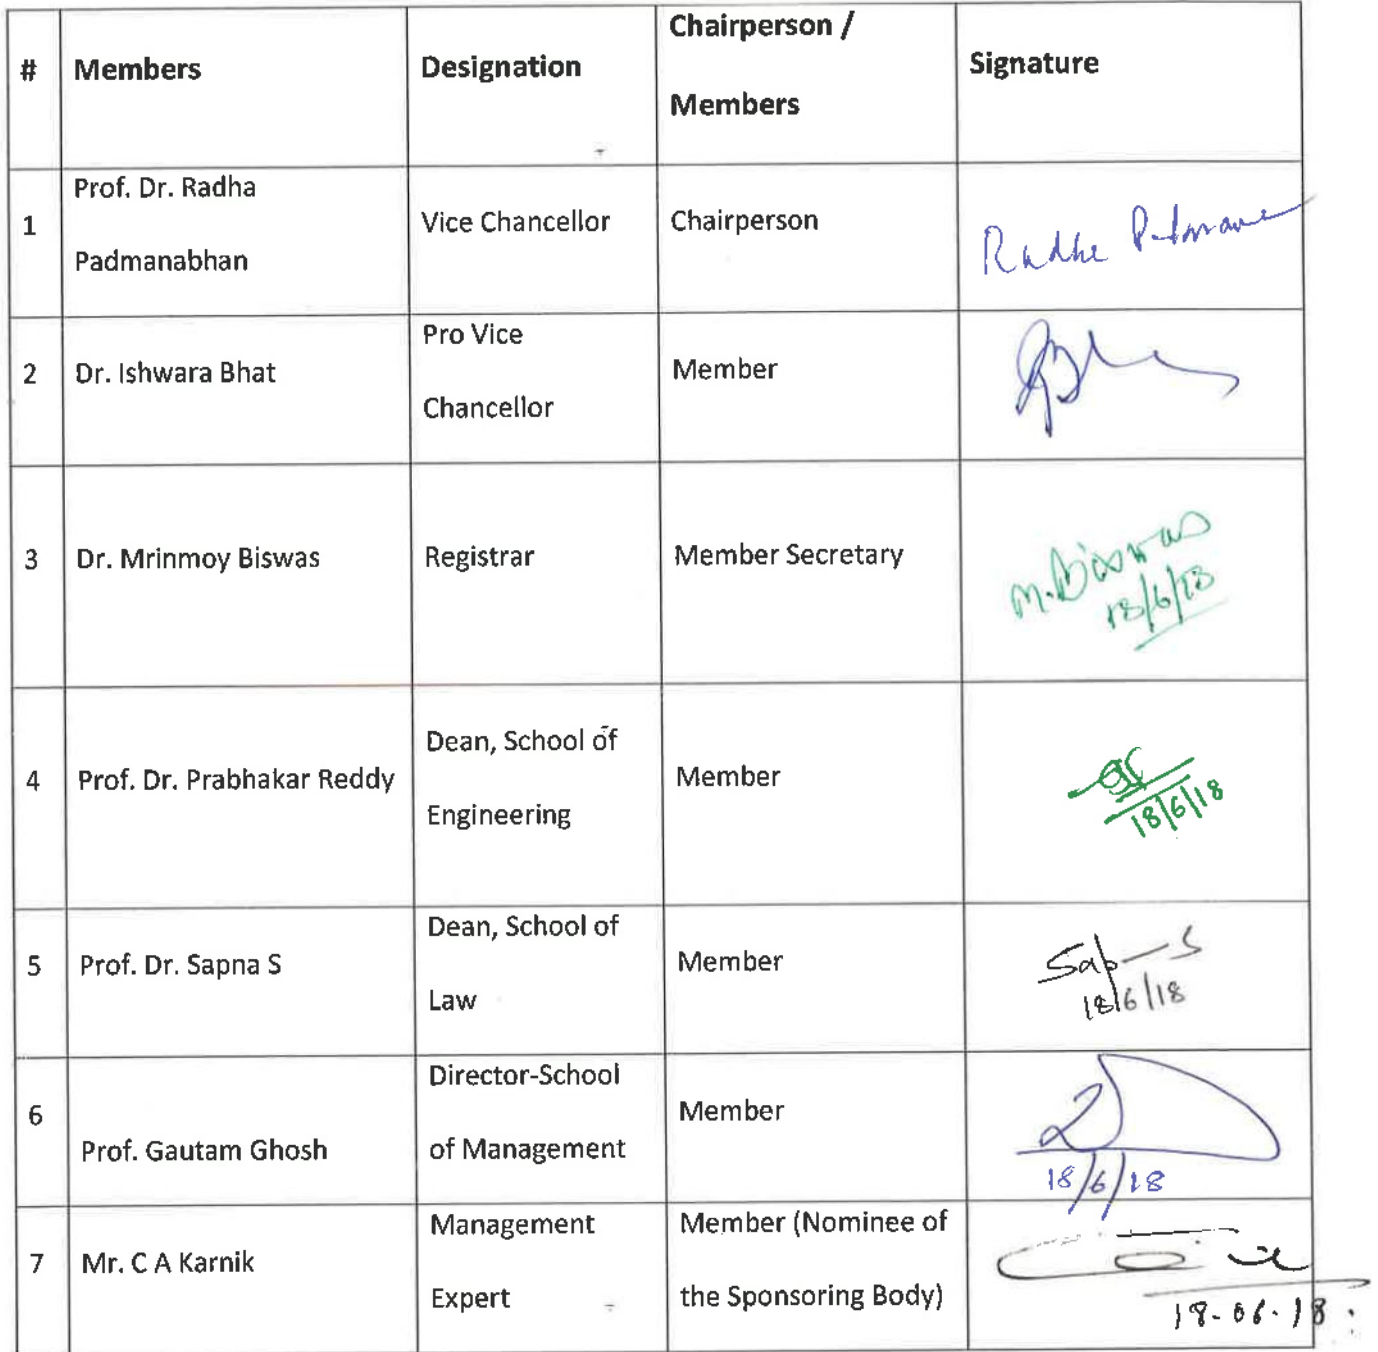 # Members Designation Chairperson / Members Signature
1 Prof. Dr. Radha Padmanabhan Vice Chancellor Chairperson Radha
2 Dr. Ishwara Bhat Pro Vice Chancellor Member
3 Dr. Mrinmoy Biswas Registrar Member Secretary M. Biswas
18/6/18
4 Prof. Dr. Prabhakar Reddy Dean, School of Engineering Member
18/6/18
5 Prof. Dr. Sapna S Dean, School of Law Member
18/6/18
6 Prof. Gautam Ghosh Director-School of Management Member
18/6/18
7 Mr. C A Karnik Management Expert Member (Nominee of the Sponsoring Body)
18-06-18